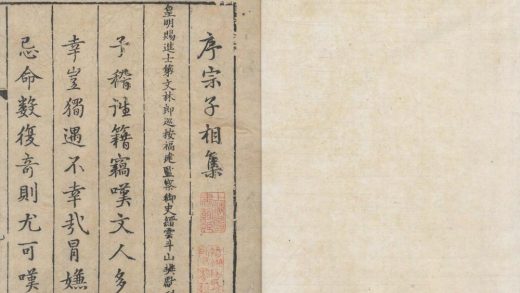 序宗子相集
皇明賜進士第文林郎巡按福建監察御史縉雲斗山樊獻
予稽徃籍竊嘆文人多
幸豈獨遇不幸哉冐嫌
忌命數復奇則尤可嘆